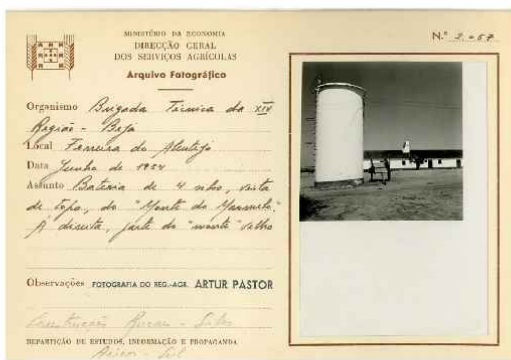 MINISTÉRIO DA ECONOMIA
DIRECÇÃO GERAL
DOS SERVIÇOS AGRÍCOLAS
Arquivo Fotográfico
N.º 2.057
Organismo Brigada Técnica da XIV
Região - Beja
Local Ferreira do Alentejo
Data Junho de 1954
Assunto Bateria de 4 silos, vista
de topo, do "Monte do
À direita, parte do "monte" velho
Observações FOTOGRAFIA DO REG.-AGR. ARTUR PASTOR
Construções Rurais - Silos
REPARTIÇÃO DE ESTUDOS, INFORMAÇÃO E PROPAGANDA